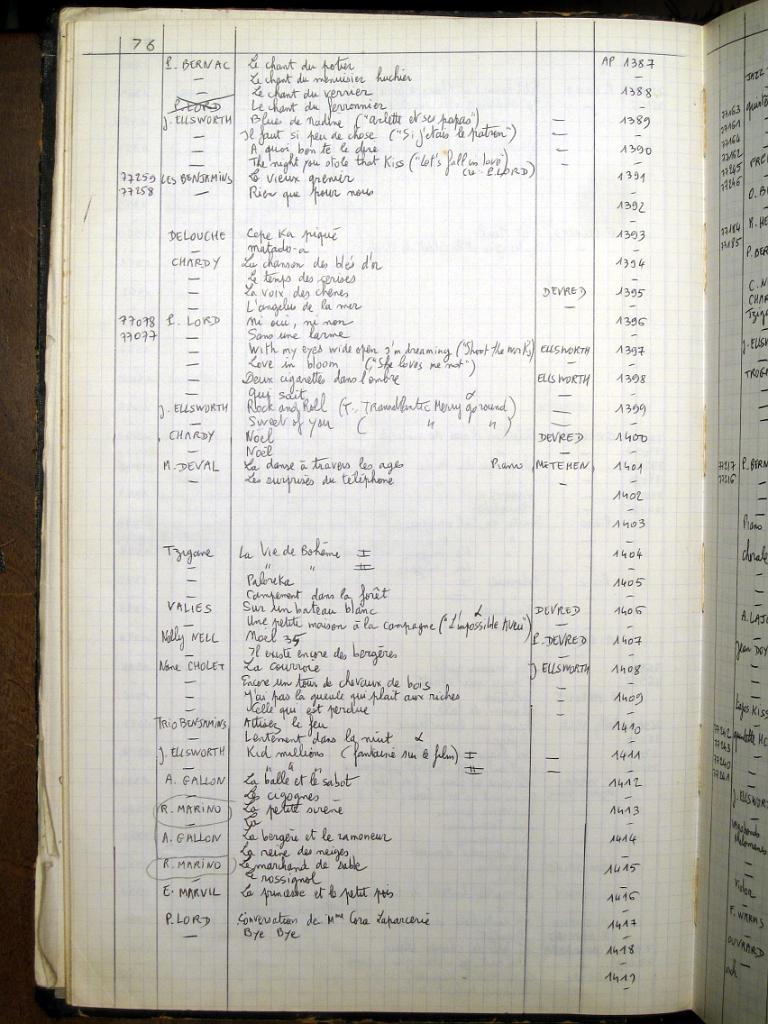 76
P. BERNAC Le chant du potier AP 1387
— Le chant du menuisier huchier —
— Le chant du verrier 1388
P. LORD Le chant du ferronnier —
J. ELLSWORTH Blue de Nadine ("Arlette et ses papas") — 1389
— Il faut si peu de chose ("Si j'étais le patron") — —
— A quoi bon te le dire — 1390
— The night you stole that kiss ("Let's fall in love") — —
(v. P. LORD)
77259 LES BENJAMINS Le vieux grenier 1391
77258 — Rien que pour nous —
1392
—
DELOUCHE Cepe Ka piqué 1393
— Matado-a —
CHARDY La chanson des blés d'or 1394
— Le temps des cerises —
— La voix des chênes DEVRED 1395
— L'angelus de la mer — —
77078 P. LORD Ni oui, ni non 1396
77077 — Sans une larme —
— With my eyes wide open I'm dreaming ("Shoot the works") ELLSWORTH 1397
— Love in bloom ("She loves me not") — —
— Deux cigarettes dans l'ombre ELLSWORTH 1398
— Qui sait — —
J. ELLSWORTH Rock and Roll (T. Transatlantic Merry go round) — 1399
— Sweet of you ( " " ) — —
CHARDY Noël DEVRED 1400
— Noël — —
M. DEVAL La danse à travers les ages Piano METEHEN 1401
— Les surprises du téléphone —
1402
—
1403
—
Tzigane La Vie de Bohême I 1404
— " " II —
— Paloteka 1405
— Campement dans la forêt —
VALIES Sur un bateau blanc DEVRED 1406
— Une petite maison à la campagne ("L'impossible Aveu") — —
Nelly NELL Noël 35 P. DEVRED 1407
— Il existe encore des bergères — —
Nane CHOLET La courroie J ELLSWORTH 1408
— Encore un tour de chevaux de bois — —
— J'ai pas la gueule qui plait aux riches — 1409
— Celle qui est perdue — —
TRIO BENJAMINS Attisez le feu 1410
— Lentement dans la nuit —
J. ELLSWORTH Kid millions (fantaisie sur le film) I — 1411
— " " II — —
A. GALLON La balle et le sabot 1412
— Les cigognes —
R. MARINO La petite sirène 1413
— La —
A. GALLON La bergère et le ramoneur 1414
— La reine des neiges —
R. MARINO Le marchand de sable 1415
— Le rossignol —
E. MARVIL La princesse et le petit pois 1416
—
P. LORD Conversation de Mme Cora Laparcerie 1417
— Bye Bye —
1418
—
1419
—